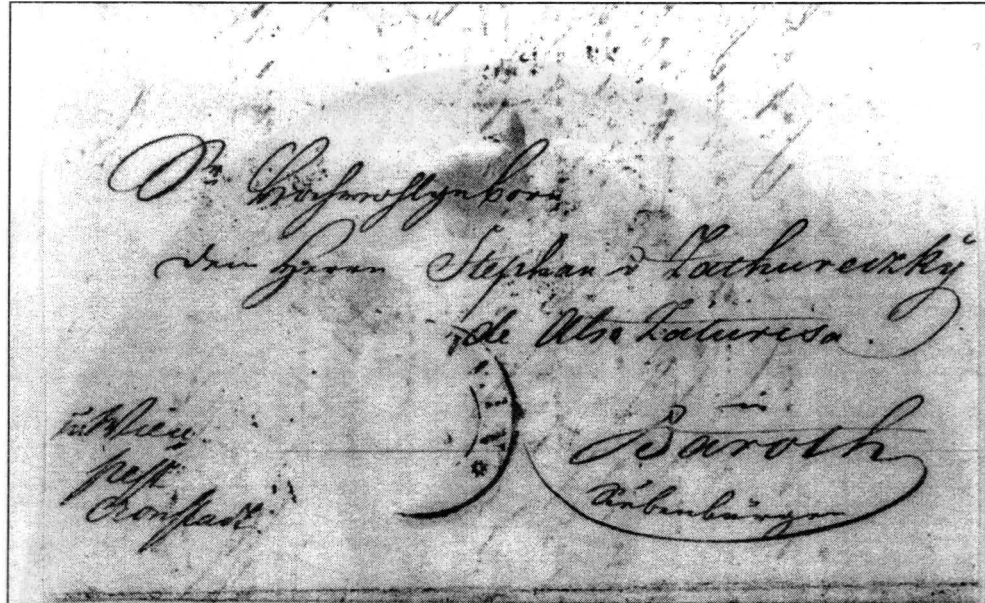 Sr Hochwohlgeborn
dem Herrn Stephan v Zathureczky
de Alsa Zaturcsa.
in
Baroth
Siebenbürgen
Wien
pest
Cronstadt